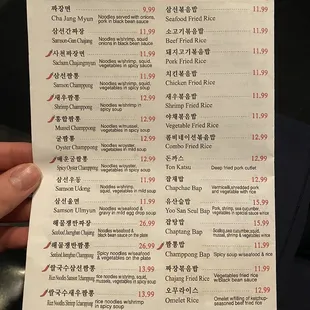 짜장면 9.99
Cha Jang Myun Noodles served with onions,
pork in black bean sauce
삼선간짜장 11.99
Samsun-Gan Chajang Noodles w/shrimp, squid
onions in black bean sauce
사천짜장면 11.99
Sachun Chajangmyun Noodles w/shrimp, squid,
vegetables in spicy sauce
삼선짬뽕 11.99
Samsun Champpong Noodles w/shrimp, squid,
vegetables in spicy soup
새우짬뽕 12.99
Shrimp Champpong Noodles w/shrimp,
vegetables in spicy soup
홍합짬뽕 12.99
Mussel Champpong Noodles w/mussel,
vegetables in spicy soup
굴짬뽕 12.99
Oyster Champpong Noodles w/oyster,
vegetables in mild soup
매운굴짬뽕 12.99
Spicy Oyster Champpong Noodles w/oyster,
vegetables in spicy soup
삼선우동 11.99
Samsun Udong Noodles w/shrimp,
squid, vegetables in mild soup
삼선울면 11.99
Samsun Ulmyun Noodles w/seafood &
gravy in mild egg drop soup
해물쟁반짜장 26.99
Seafood Jaengban Chajang Noodles w/seafood &
black bean sauce on the plate
해물쟁반짬뽕 26.99
Seafood Jaengban Champpong Spicy noodles w/seafood &
vegetables on the plate
쌀국수삼선짬뽕 13.99
Rice Noodles Samsun Champpong Rice noodles w/shrimp, squid,
mussels, vegetables in spicy soup
쌀국수새우짬뽕 13.99
Rice Noodles Shrimp Champpong Rice noodles w/shrimp
in spicy soup
삼선볶음밥 11.99
Seafood Fried Rice
소고기볶음밥 11.99
Beef Fried Rice
돼지고기볶음밥 11.99
Pork Fried Rice
치킨볶음밥 11.99
Chicken Fried Rice
새우볶음밥 11.99
Shrimp Fried Rice
야채볶음밥 11.99
Vegetable Fried Rice
콤비네이션볶음밥 12.99
Combo Fried Rice
돈까스 12.99
Ton Katsu Deep fried pork cutlet
잡채밥 12.99
Chapchae Bap Vermicelli,shredded pork
and vegetable with rice
유산슬밥 15.99
Yoo San Seul Bap Pork, shrimp, sea cucumber,
vegetables in special sauce
잡탕밥 15.99
Chaptang Bap Scallop, shrimp, squid,
sea cucumber &
vegetables in brown sauce
짬뽕밥 11.99
Champpong Bap Spicy seafood soup w/rice
짜장볶음밥 11.99
Chajang Fried Rice Vegetables fried rice
w/black bean sauce
오무라이스 12.99
Omelet Rice Omelet w/filling of ketchup-
seasoned beef fried rice